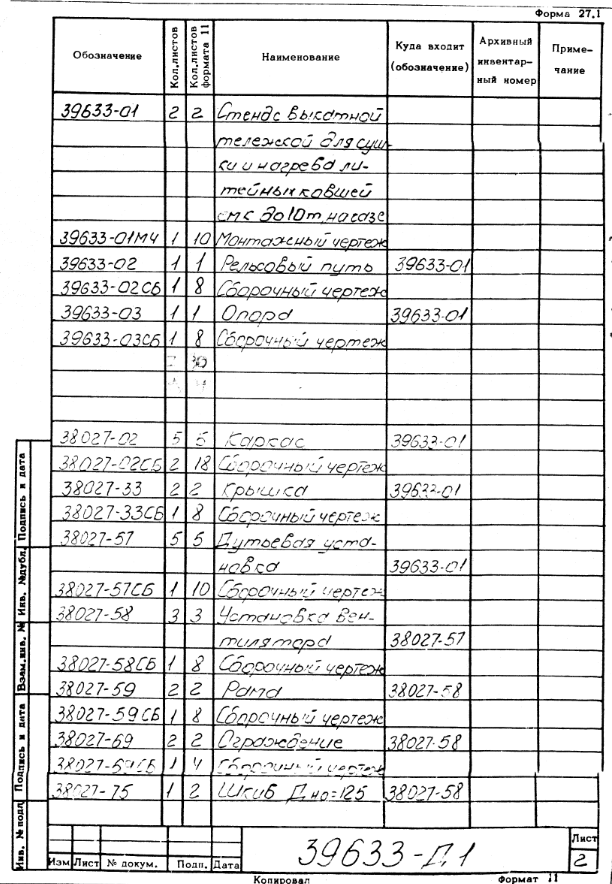 Форма 27.1
Обозначение Кол.листов Кол.листов формата 11 Наименование Куда входит (обозначение) Архивный инвентар-ный номер Приме-чание
39633-01 2 2 Стенд с выкатной
тележкой для суш-
ки и нагрева ли-
тейных ковшей
емк до 10т, на газе
39633-01МЧ 1 10 Монтажный чертеж
39633-02 1 1 Рельсовый путь 39633-01
39633-02СБ 1 8 Сборочный чертеж
39633-03 1 1 Опора 39633-01
39633-03СБ 1 8 Сборочный чертеж
30
4
38027-02 5 5 Каркас 39633-01
38027-02СБ 2 18 Сборочный чертеж
38027-33 2 2 Крышка 39633-01
38027-33СБ 1 8 Сборочный чертеж
38027-57 5 5 Дутьевая уста-
новка 39633-01
38027-57СБ 1 10 Сборочный чертеж
38027-58 3 3 Установка вен-
тилятора 38027-57
38027-58СБ 1 8 Сборочный чертеж
38027-59 2 2 Рама 38027-58
38027-59СБ 1 8 Сборочный чертеж
38027-69 2 2 Ограждение 38027-58
38027-69СБ 1 4 Сборочный чертеж
38027-75 1 2 Шкив Дно=125 38027-58
Инв. № подл. Подпись и дата Взам.инв. № Инв. №дубл. Подпись и дата
39633-Д1
Лист
2
Изм Лист № докум. Подп. Дата
Копировал Формат 11